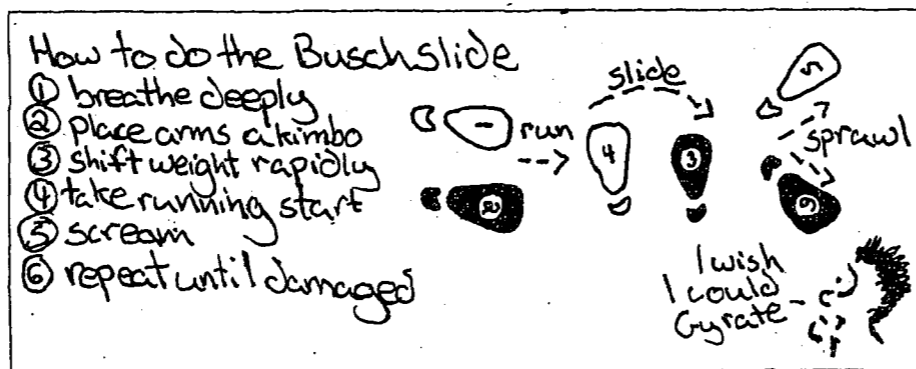 How to do the Buschslide
① breathe deeply
② place arms akimbo
③ shift weight rapidly
④ take running start
⑤ scream
⑥ repeat until damaged
1
2
run
4
slide
3
5
sprawl
6
I wish
I could
Gyrate